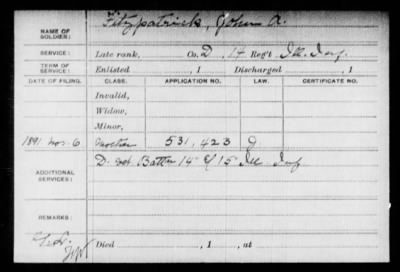 NAME OF SOLDIER: Fitzpatrick, John A.
SERVICE: Late rank, Co. D, 14 Reg't Ill. Inf.
TERM OF SERVICE: Enlisted , 1 Discharged , 1
DATE OF FILING. CLASS. APPLICATION NO. LAW. CERTIFICATE NO.
Invalid,
Widow,
Minor,
1891 Nov. 6 Mother 531,423
ADDITIONAL SERVICES: D. Vet. Battn 14" & 15" Ill Inf
REMARKS:
Died , 1 , at